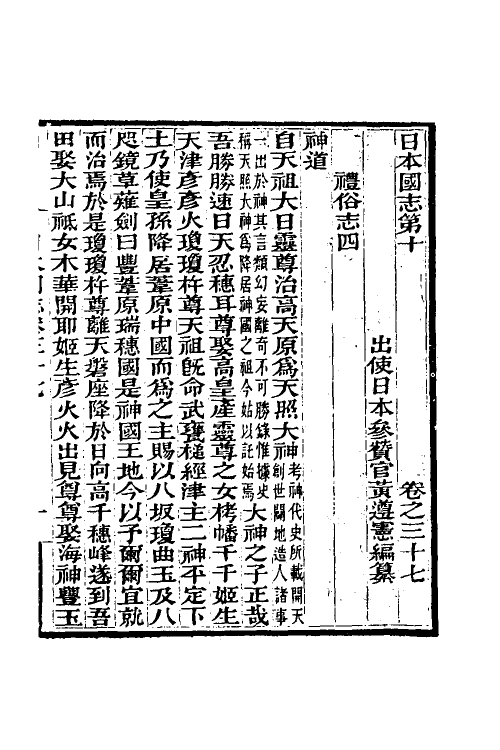 日本國志第十
卷之三十七
出使日本參贊官黃遵憲編纂
禮俗志四
神道
自天祖大日靈尊治高天原爲天照大神考神代史所載開天
神創世闢地造人諸事
一出於神其言類幻妄離奇不可勝錄惟據史
稱天照大神爲降居神國之祖今姑以託始焉大神之子正哉
吾勝勝速日天忍穗耳尊娶高皇產靈尊之女栲幡千千姬生
天津彥彥火瓊瓊杵尊天祖旣命武甕槌經津主二神平定下
土乃使皇孫降居葦原中國而爲之主賜以八坂瓊曲玉及八
咫鏡草薙劍曰豐葦原瑞穗國是神國王地今以予爾爾宜就
而治焉於是瓊瓊杵尊離天磐座降於日向高千穗峰遂到吾
田娶大山祗女木華開耶姬生彥火火出見尊尊娶海神豐玉